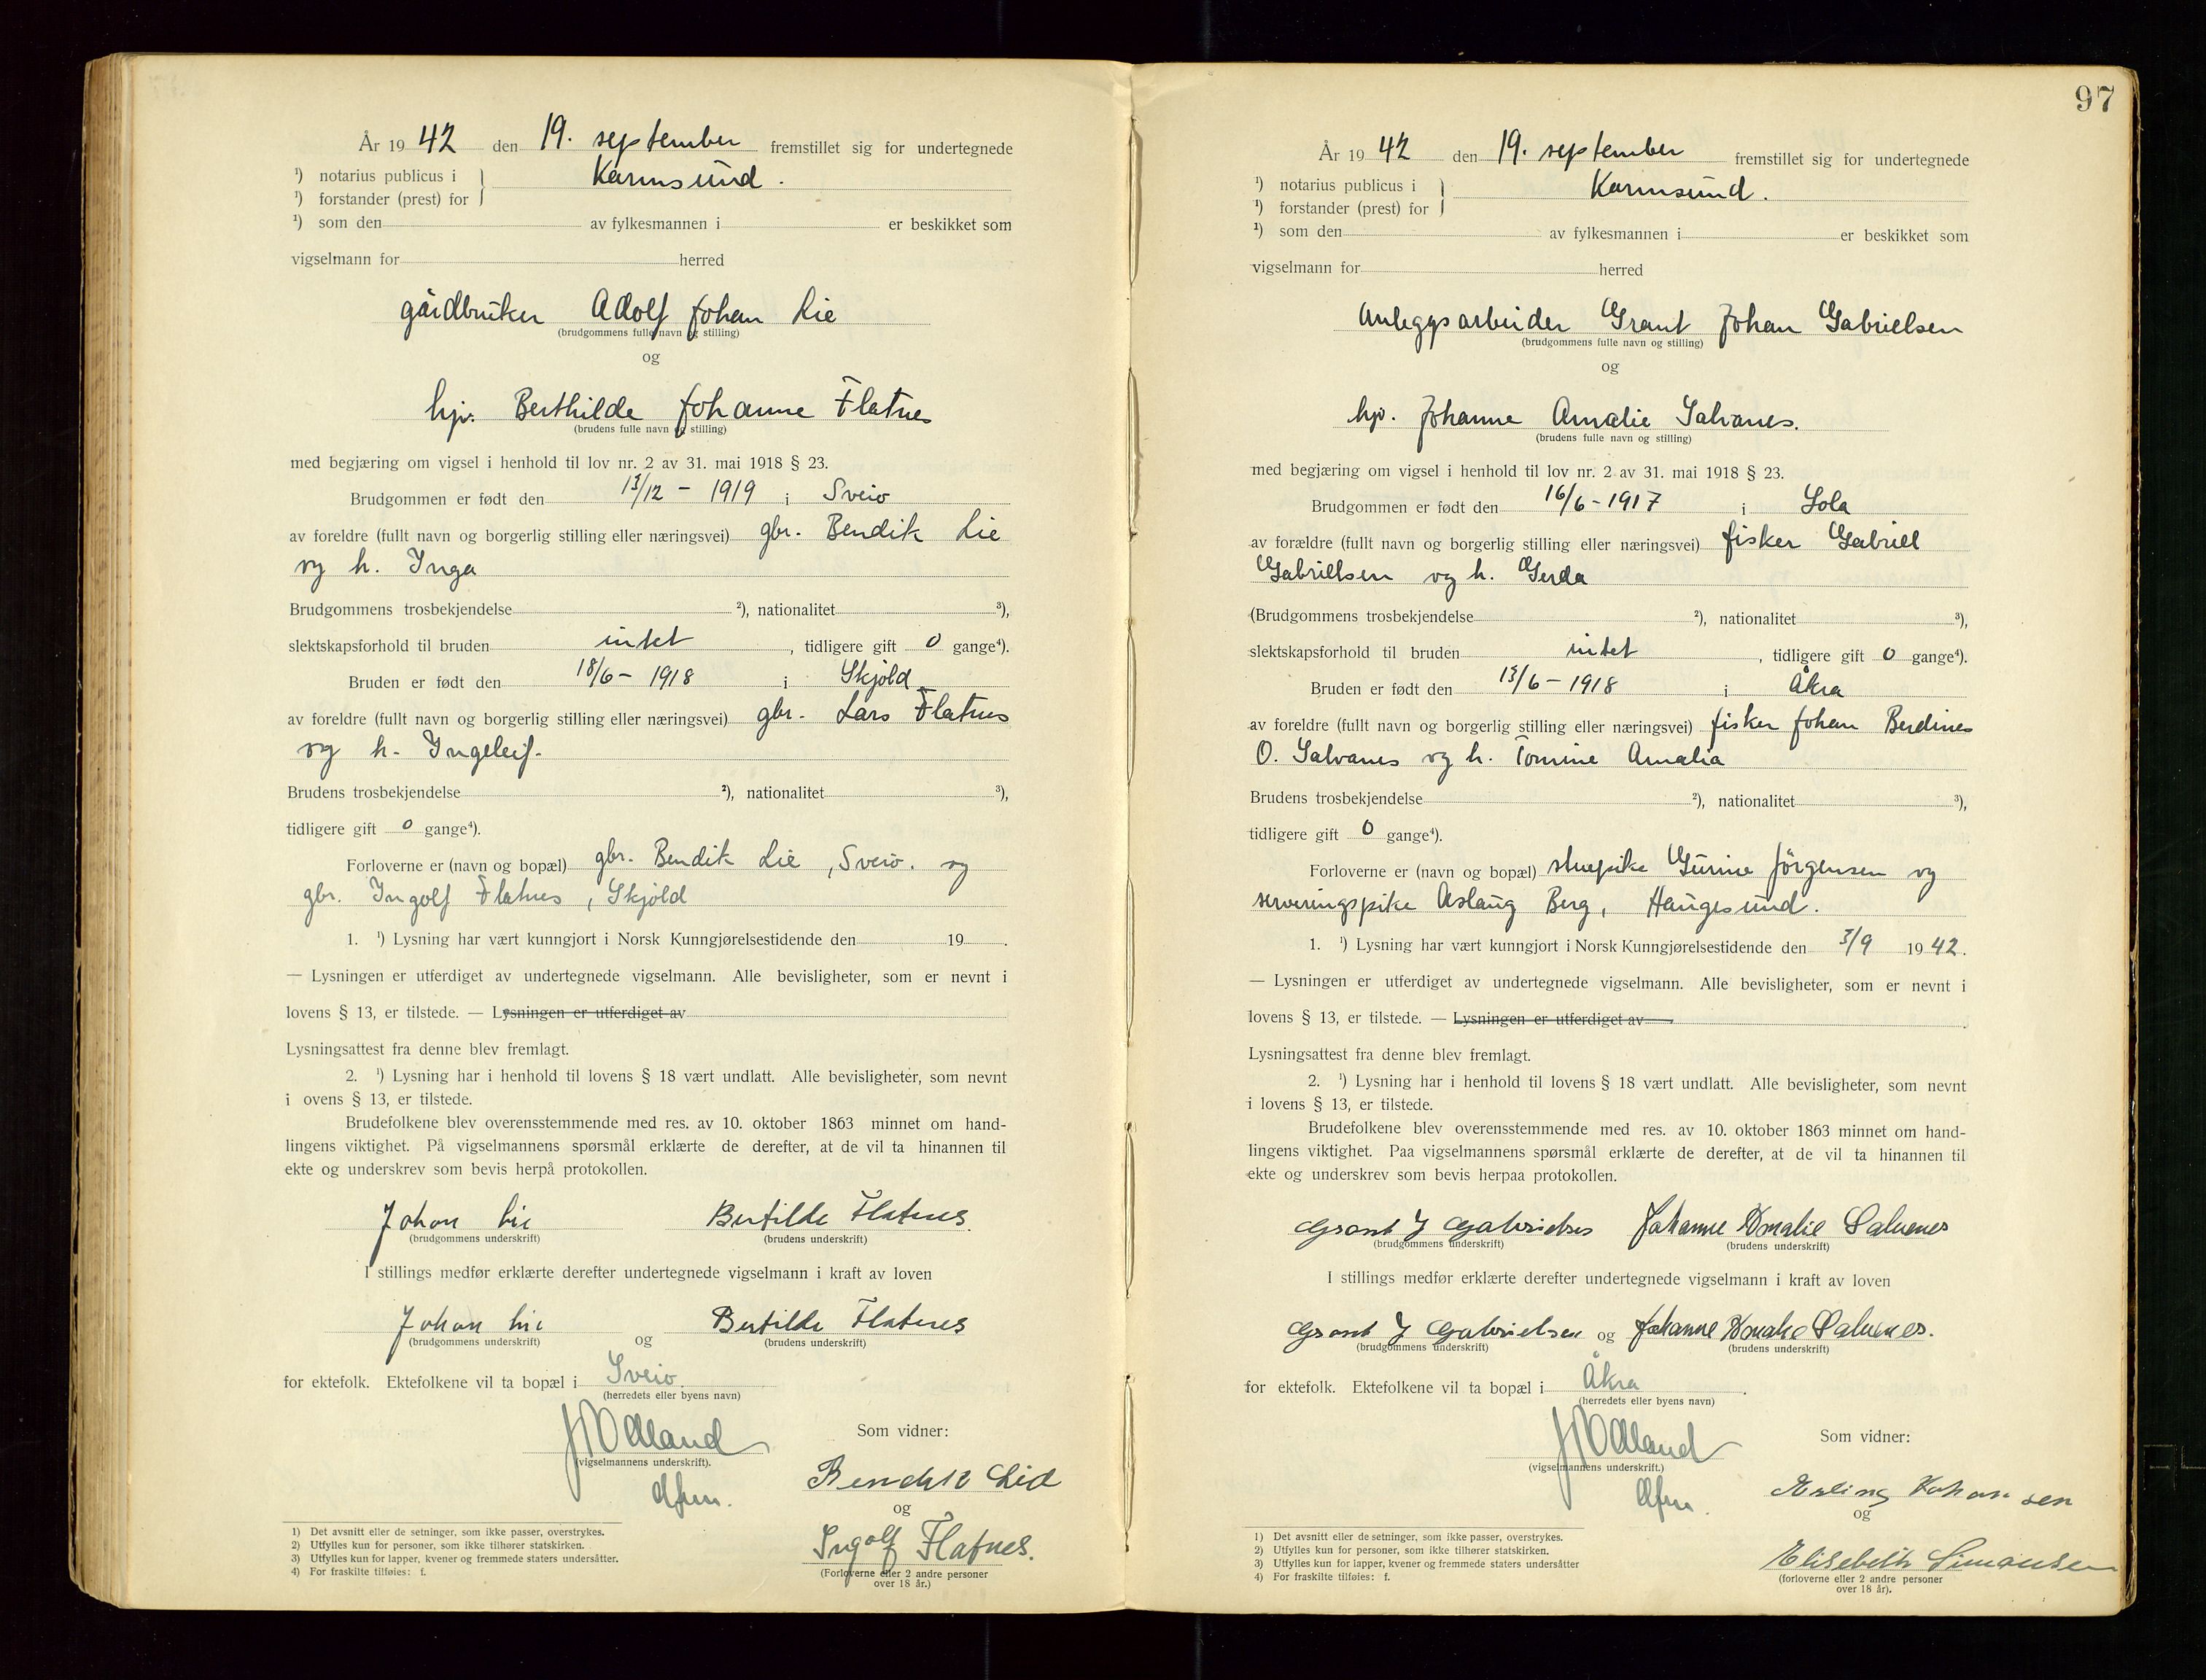 År 1942 den 19. september fremstillet sig for undertegnede
¹) notarius publicus i } Karmsund.
¹) forstander (prest) for
¹) som den av fylkesmannen i er beskikket som
vigselmann for herred
gårdbruker Adolf Johan Lie
(brudgommens fulle navn og stilling)
og
hjv. Berthilde Johanne Flatnes
(brudens fulle navn og stilling)
med begjæring om vigsel i henhold til lov nr. 2 av 31. mai 1918 § 23.
Brudgommen er født den 13/12 - 1919 i Sveio
av foreldre (fullt navn og borgerlig stilling eller næringsvei) gbr. Bendik Lie
og h. Inga
Brudgommens trosbekjendelse ²), nationalitet ³),
slektskapsforhold til bruden intet , tidligere gift 0 gange⁴).
Bruden er født den 18/6 - 1918 i Skjold
av foreldre (fullt navn og borgerlig stilling eller næringsvei) gbr. Lars Flatnes
og h. Ingeleif.
Brudens trosbekjendelse ²), nationalitet ³),
tidligere gift 0 gange⁴).
Forloverne er (navn og bopæl) gbr. Bendik Lie, Sveio. og
gbr. Ingolf Flatnes, Skjold
1. ¹) Lysning har vært kunngjort i Norsk Kunngjørelsestidende den 19 .
— Lysningen er utferdiget av undertegnede vigselmann. Alle bevisligheter, som er nevnt i
lovens § 13, er tilstede. — Lysningen er utferdiget av
Lysningsattest fra denne blev fremlagt.
2. ¹) Lysning har i henhold til lovens § 18 vært undlatt. Alle bevisligheter, som nevnt
i ovens § 13, er tilstede.
Brudefolkene blev overensstemmende med res. av 10. oktober 1863 minnet om hand-
lingens viktighet. På vigselmannens spørsmål erklærte de derefter, at de vil ta hinannen til
ekte og underskrev som bevis herpå protokollen.
Johan Lie Bertilde Flatnes.
(brudgommens underskrift) (brudens underskrift)
I stillings medfør erklærte derefter undertegnede vigselmann i kraft av loven
Johan Lie og Bertilde Flatnes
(brudgommens underskrift) (brudens underskrift)
for ektefolk. Ektefolkene vil ta bopæl i Sveio.
(herredets eller byens navn)
Som vidner:
(vigselmannens underskrift).
Bendik Lie
og
Ingolf Flatnes.
(Forloverne eller 2 andre personer
over 18 år.)
1) Det avsnitt eller de setninger, som ikke passer, overstrykes.
2) Utfylles kun for personer, som ikke tilhører statskirken.
3) Utfylles kun for lapper, kvener og fremmede staters undersåtter.
4) For fraskilte tilføies: f.
97
År 1942 den 19. september fremstillet sig for undertegnede
¹) notarius publicus i } Karmsund.
¹) forstander (prest) for
¹) som den av fylkesmannen i er beskikket som
vigselmann for herred
Anleggsarbeider Grant Johan Gabrielsen
(brudgommens fulle navn og stilling)
og
hjv. Johanne Amalie Salvanes.
(brudens fulle navn og stilling)
med begjæring om vigsel i henhold til lov nr. 2 av 31. mai 1918 § 23.
Brudgommen er født den 16/6 - 1917 i Sola
av forældre (fullt navn og borgerlig stilling eller næringsvei) fisker Gabriel
Gabrielsen og h. Gerda
(Brudgommens trosbekjendelse ²), nationalitet ³),
slektskapsforhold til bruden intet , tidligere gift 0 gange⁴).
Bruden er født den 13/6 - 1918 i Åkra
av foreldre (fullt navn og borgerlig stilling eller næringsvei) fisker Johan Berdines
O. Salvanes og h. Tomine Amalia
Brudens trosbekjendelse ²), nationalitet ³),
tidligere gift 0 gange⁴).
Forloverne er (navn og bopæl) stuepike Gurine Jörgensen og
serveringspike Aslaug Berg, Haugesund.
1. ¹) Lysning har vært kunngjort i Norsk Kunngjørelsestidende den 3/9 1942.
— Lysningen er utferdiget av undertegnede vigselmann. Alle bevisligheter, som er nevnt i
lovens § 13, er tilstede. — Lysningen er utferdiget av
Lysningsattest fra denne blev fremlagt.
2. ¹) Lysning har i henhold til lovens § 18 vært undlatt. Alle bevisligheter, som nevnt
i lovens § 13, er tilstede.
Brudefolkene blev overensstemmende med res. av 10. oktober 1863 minnet om hand-
lingens viktighet. Paa vigselmannens spørsmål erklærte de derefter, at de vil ta hinannen til
ekte og underskrev som bevis herpaa protokollen.
Grant J Gabrielsen Johanne Amalie Salvanes
(brudgommens underskrift) (brudens underskrift)
I stillings medfør erklærte derefter undertegnede vigselmann i kraft av loven
Grant J Gabrielsen og Johanne Amalie Salvanes.
(brudgommens underskrift) (brudens underskrift)
for ektefolk. Ektefolkene vil ta bopæl i Åkra .
(herredets eller byens navn)
Som vidner:
(vigselmannens underskrift.)
Erling Johansen
og
Elisabeth Simonsen
(forloverne eller 2 andre personer
over 18 år).
1) Det avsnitt eller de setninger, som ikke passer, overstrykes.
2) Utfylles kun for personer, som ikke tilhører statskirken.
3) Utfylles kun for lapper, kvener og fremmede staters undersåtter
4) For fraskilte tilføies: f.